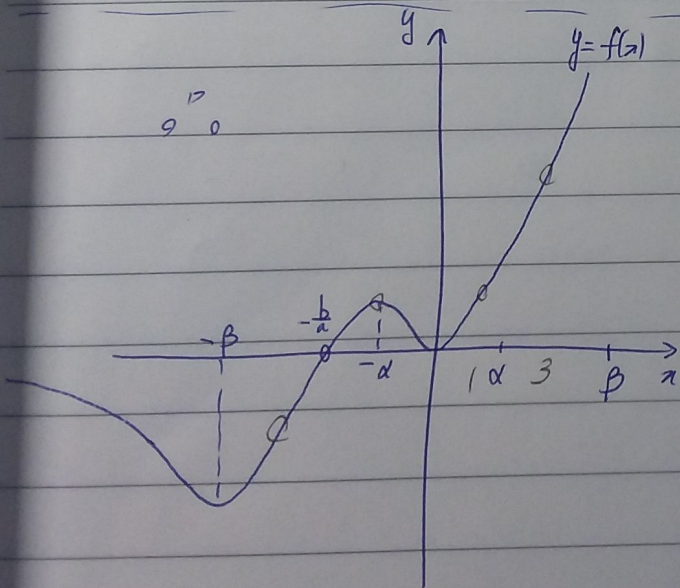 y
y = f(x)
-b/a
-β
-α
1 α 3 β x